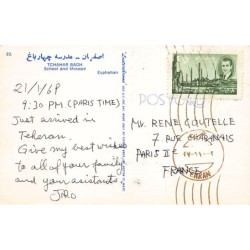 اصفهان - مدرسه چهارباغ
85
TCHAHAR BAGH
School and Mosque
Esphahan
POSTCARD
21/1/68
9:30 PM (PARIS TIME)
Just arrived in
Teheran.
Give my best wishes
to all of your family
and your assistants
JIRO
MR. RENE COUTELLE
7 RUE CHABANAIS
PARIS IIe
FRANCE